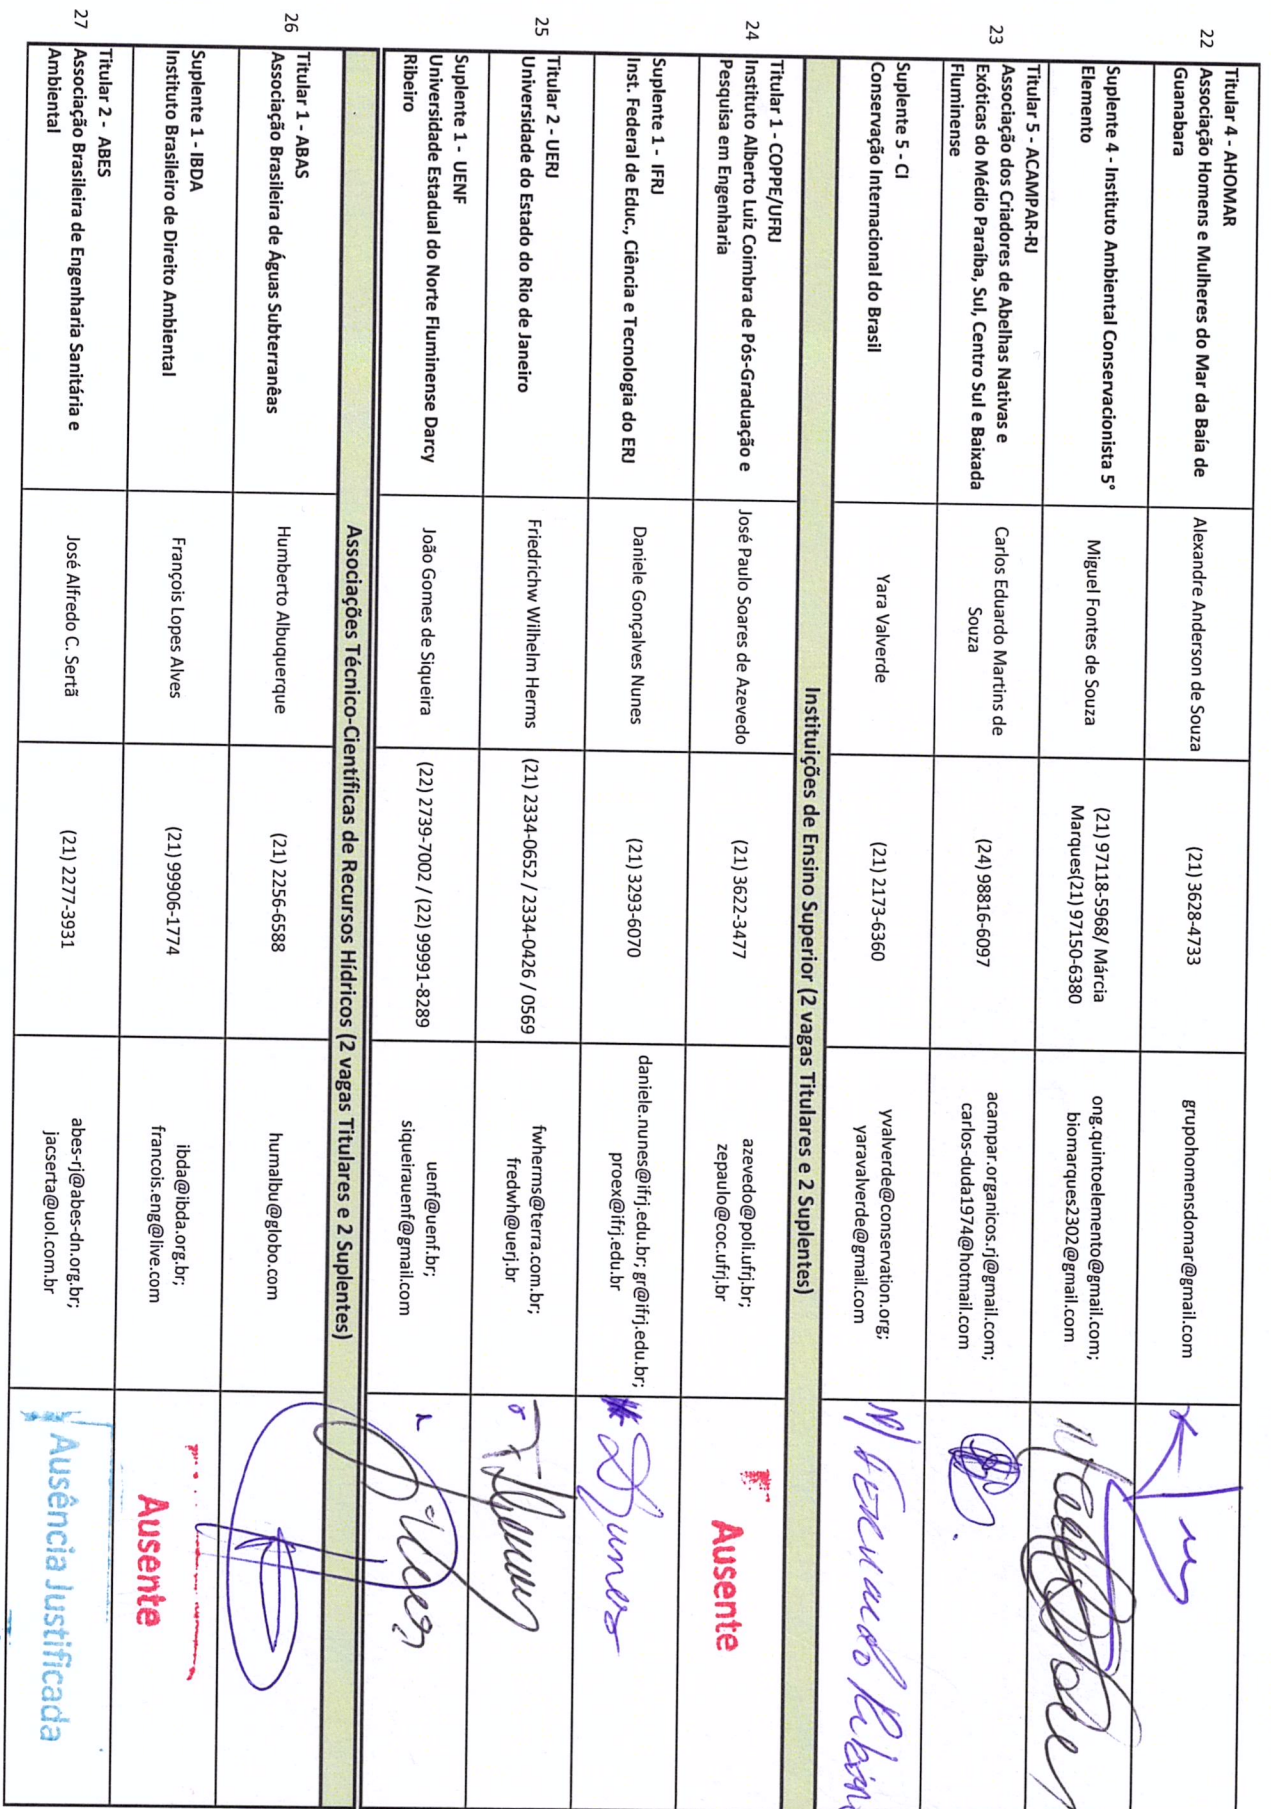 22
Titular 4 - AHOMAR
Associação Homens e Mulheres do Mar da Baía de
Guanabara
Alexandre Anderson de Souza
(21) 3628-4733
grupohomensdomar@gmail.com
Suplente 4 - Instituto Ambiental Conservacionista 5°
Elemento
Miguel Fontes de Souza
(21) 97118-5968/ Márcia
Marques(21) 97150-6380
ong.quintoelemento@gmail.com;
biomarques2302@gmail.com
23
Titular 5 - ACAMPAR-RJ
Associação dos Criadores de Abelhas Nativas e
Exóticas do Médio Paraíba, Sul, Centro Sul e Baixada
Fluminense
Carlos Eduardo Martins de
Souza
(24) 98816-6097
acampar.organicos.rj@gmail.com;
carlos-duda1974@hotmail.com
Suplente 5 - CI
Conservação Internacional do Brasil
Yara Valverde
(21) 2173-6360
yvalverde@conservation.org;
yaravalverde@gmail.com
Instituições de Ensino Superior (2 vagas Titulares e 2 Suplentes)
24
Titular 1 - COPPE/UFRJ
Instituto Alberto Luiz Coimbra de Pós-Graduação e
Pesquisa em Engenharia
José Paulo Soares de Azevedo
(21) 3622-3477
azevedo@poli.ufrj.br;
zepaulo@coc.ufrj.br
Ausente
Suplente 1 - IFRJ
Inst. Federal de Educ., Ciência e Tecnologia do ERJ
Daniele Gonçalves Nunes
(21) 3293-6070
daniele.nunes@ifrj.edu.br; gr@ifrj.edu.br;
proex@ifrj.edu.br
25
Titular 2 - UERJ
Universidade do Estado do Rio de Janeiro
Friedrichw Wilhelm Herms
(21) 2334-0652 / 2334-0426 / 0569
fwherms@terra.com.br;
fredwh@uerj.br
Suplente 1 - UENF
Universidade Estadual do Norte Fluminense Darcy
Ribeiro
João Gomes de Siqueira
(22) 2739-7002 / (22) 99991-8289
uenf@uenf.br;
siqueirauenf@gmail.com
Associações Técnico-Científicas de Recursos Hídricos (2 vagas Titulares e 2 Suplentes)
26
Titular 1 - ABAS
Associação Brasileira de Águas Subterranêas
Humberto Albuquerque
(21) 2256-6588
humalbu@globo.com
Suplente 1 - IBDA
Instituto Brasileiro de Direito Ambiental
François Lopes Alves
(21) 99906-1774
ibda@ibda.org.br;
francois.eng@live.com
Ausente
27
Titular 2 - ABES
Associação Brasileira de Engenharia Sanitária e
Ambiental
José Alfredo C. Sertã
(21) 2277-3931
abes-rj@abes-dn.org.br;
jacserta@uol.com.br
Ausência Justificada